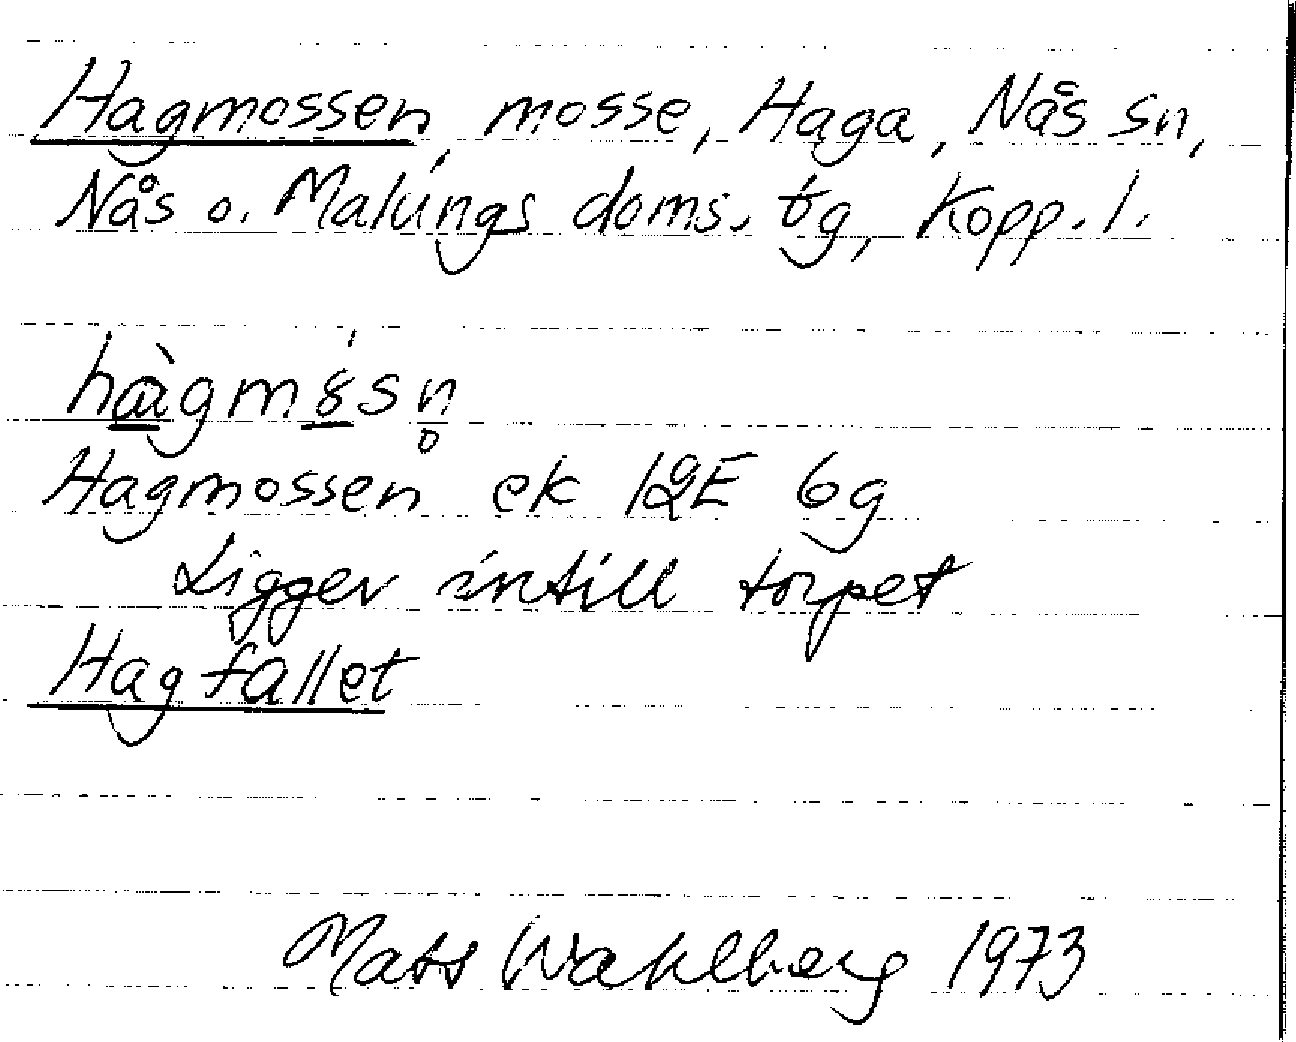 Hagmossen, mosse, Haga, Nås sn,
Nås o. Malungs doms. tg, Kopp. l.
hàgmósn̥
Hagmossen ek 12E 6g
Ligger intill torpet
Hagfallet
Mats Wahlberg 1973